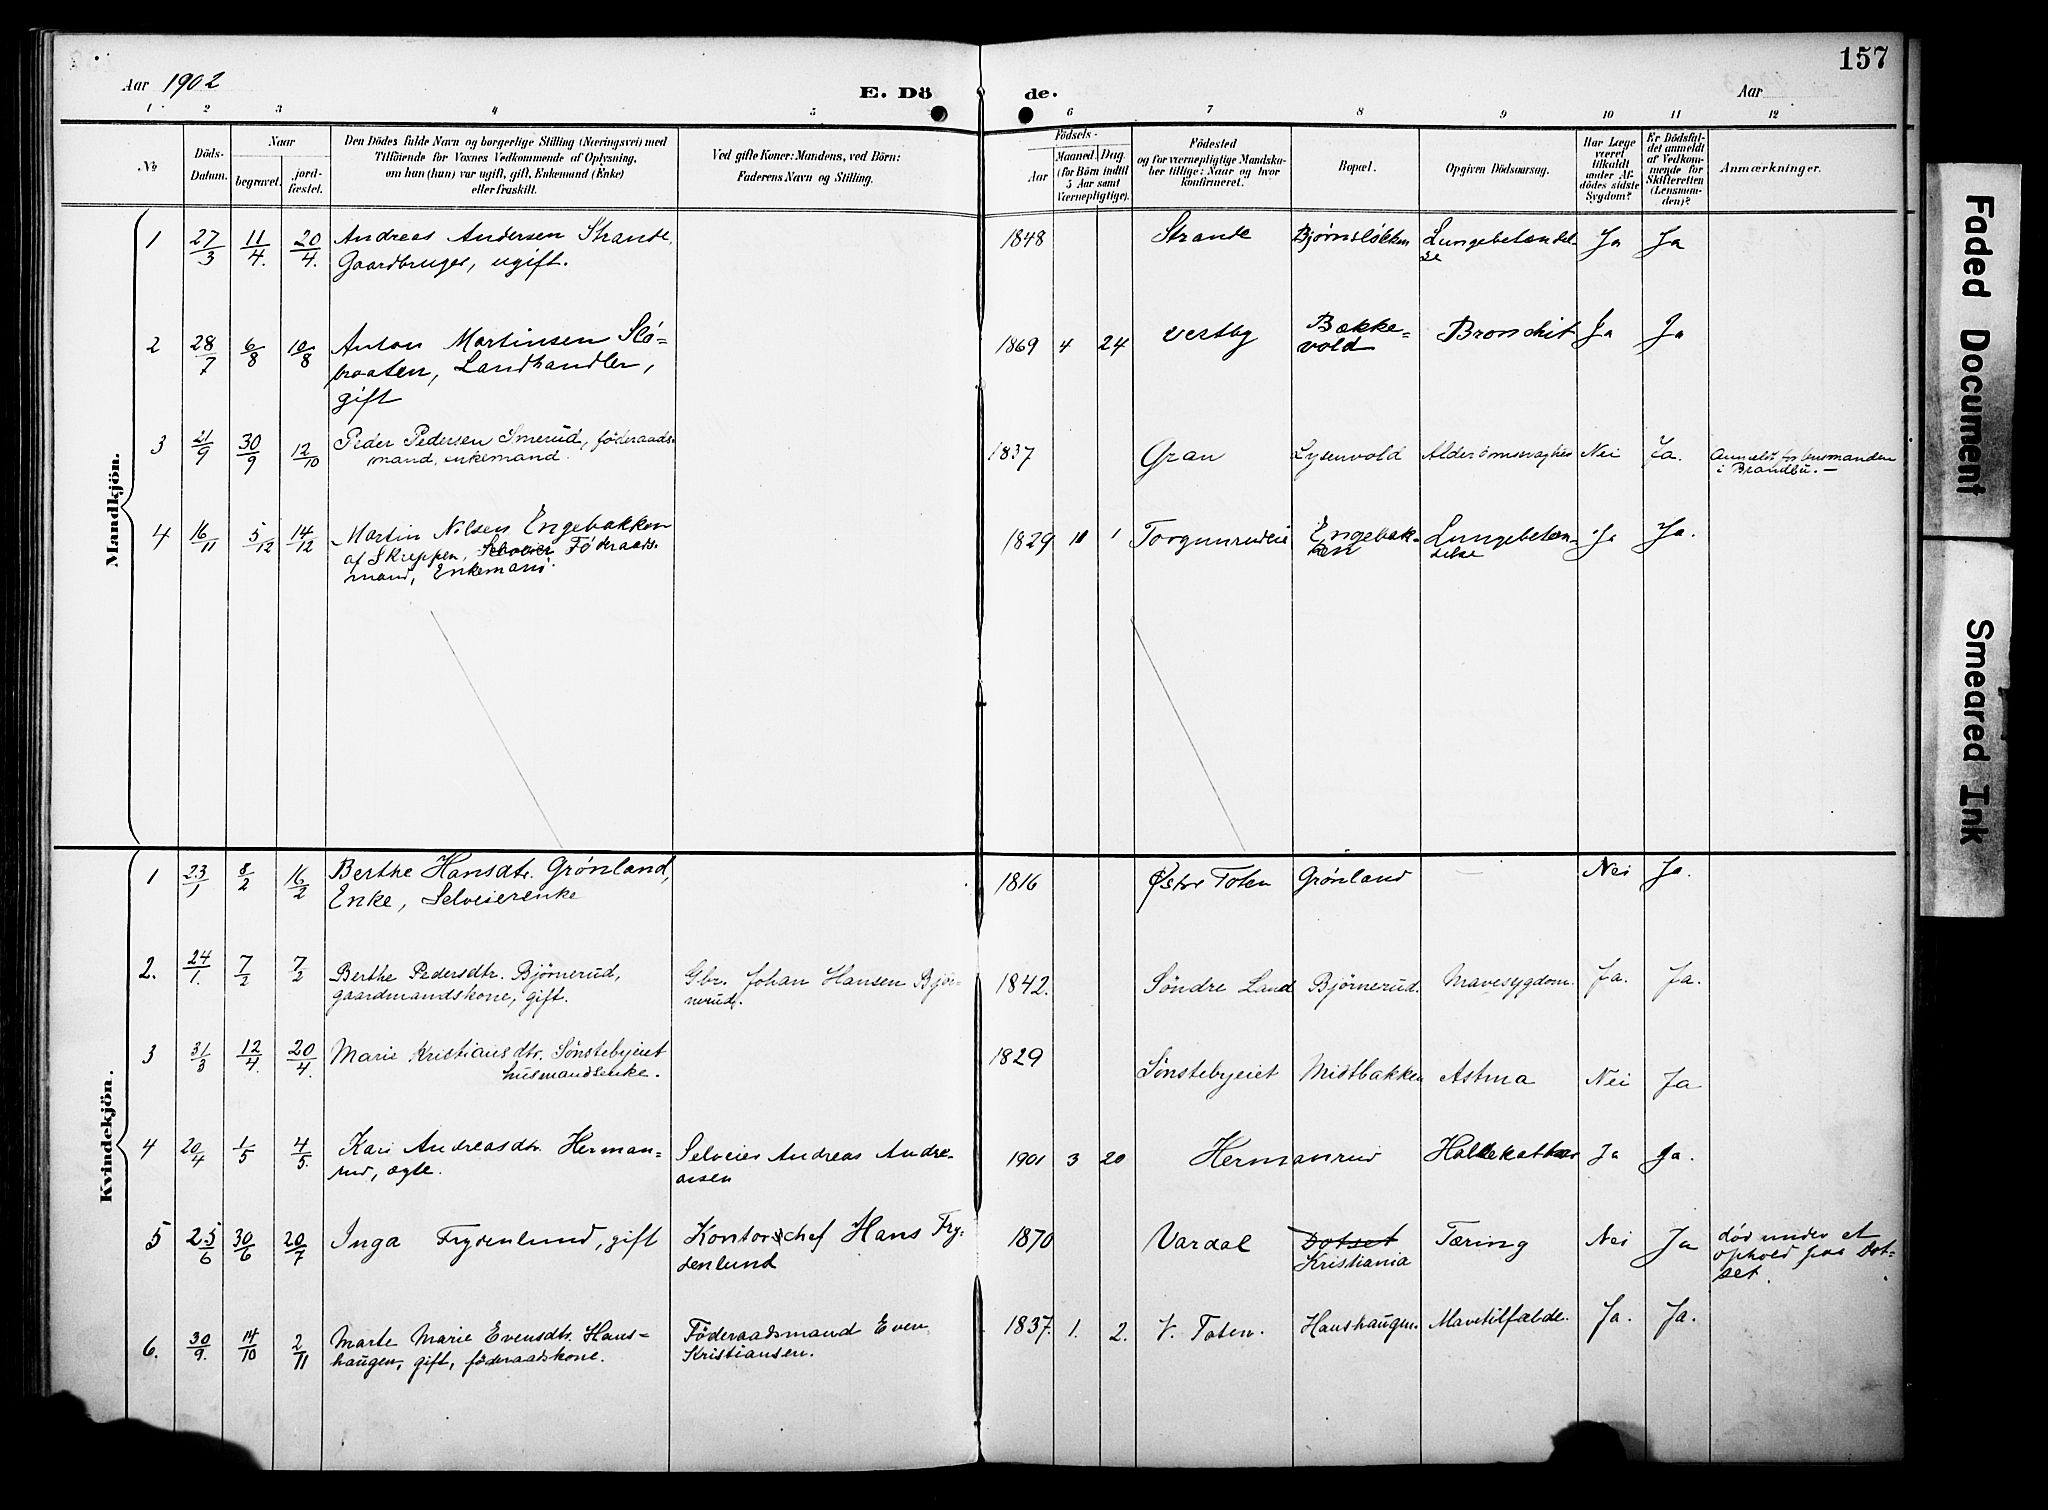 157
Aar 1902
E. Döde.
Aar
1 2 3 4 5 6 7 8 9 10 11 12
No
Döds-Datum.
Naar
begravet.
jord-fæstet.
Den Dödes fulde Navn og borgerlige Stilling (Næringsvei) med
Tilföiende for Voxnes Vedkommende af Oplysning,
om han (hun) var ugift, gift, Enkemand (Enke)
eller fraskilt.
Ved gifte Koner: Mandens, ved Börn:
Faderens Navn og Stilling.
Födsels-
Aar
Maaned. Dag
(for Börn indtil
5 Aar samt
Værnepligtige).
Födested
og for værnepligtige Mandska-
ber tillige: Naar og hvor
konfirmeret.
Bopæl.
Opgiven Dödsaarsag.
Har Læge
været
tilkaldt
under Af-
dödes sidste
Sygdom?
Er Dödsfal-
det anmeldt
af Vedkom-
mende for
Skifteretten
(Lensman-
den)?
Anmærkninger.
Mandkjön.
1 27/3 11/4. 20/4. Andreas Andersen Strande, 1848 Strande Bjørnsløkken Lungebetændel- Ja Ja
Gaardbruger, ugift. se
2 28/7 6/8 10/8 Anton Martinsen Slå- 1869 4 24 Vestby Bække- Bronchit Ja Ja
braaten, Landhandler, vold
gift
3 21/9 30/9 12/10 Peder Pedersen Smerud, föderaads- 1837 Gran Lysenvold Nei Ja.
mand, enkemand. i Brandbu. –
4 16/11 5/12 14/12 Martin Nilsen Engebakken 1829 1 Engebak- Lungebetæn- Ja Ja.
af Skreppen, Selveier Föderaads- ken delse
mand, Enkemand.
Kvindekjön.
1 23/1 8/2 16/2 Berthe Hansdtr. Grønland, 1816 Østre Toten Grønland — Nei Ja.
Enke, Selveierenke
2. 24/1. 7/2 7/2 Berthe Pedersdtr. Bjørnerud, Gbr. Johan Hansen Bjør- 1842. Søndre Land Bjørnerud. Mavesygdom. Ja. Ja.
gaardmandskone, gift. nerud.
3 31/3 12/4. 20/4. Marie Kristiansdtr. Sønstebyeiet 1829 Sønstebyeiet Midtbakken Astma Nei Ja
husmandsenke.
4 20/4 1/5 4/5. Kari Andreasdtr. Herman- Selveier Andreas Andre- 1901 3 20 Hermanrud Ja Ja.
rud, ægte. asen
5 25/6 30/6 20/7 Inga Frydenlund, gift Kontorchef Hans Fry- 1870 Vardal Dotset Tæring Nei Ja død under et
denlund Kristiania ophold paa Dot-
set.
6. 30/9. 14/10 2/11 Marte Marie Evensdtr. Haus- Föderaadsmand Even 1837. 1. 2. V. Toten. Haushaugen. Mavetilfælde. Ja. Ja.
haugen, gift, föderaadskone. Kristiansen.
Faded Document
Smeared Ink